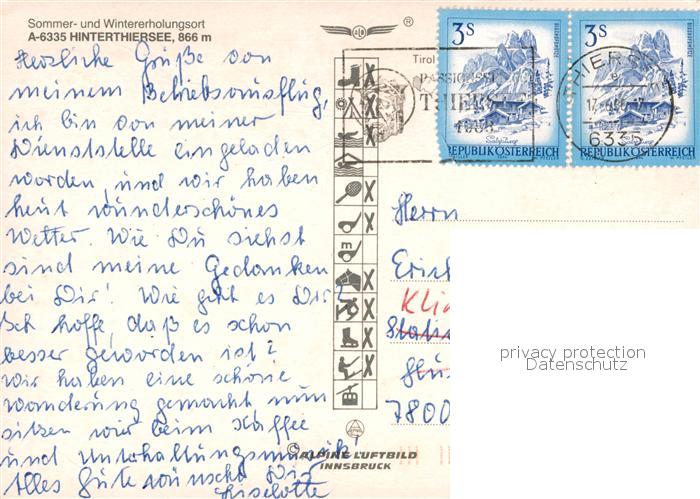 Sommer- und Wintererholungsort
A-6335 HINTERTHIERSEE, 866 m
®
Herzliche Grüße von
meinem Betriebsausflug,
ich bin von meiner
Dienststelle eingeladen
worden, und wir haben
heut wunderschönes
Wetter. Wie Du siehst
sind meine Gedanken
bei Dir! Wie geht es Dir?
Ich hoffe, daß es schon
besser geworden ist?
Wir haben eine schöne
Wanderung gemacht nun
sitzen wir beim Kaffee
und Unterhaltungsmusik!
Alles Gute wünscht Dir
Liselotte
Tirol
PASSIONSSPIELE
THIERSEE
3S
REPUBLIK ÖSTERREICH
3S
REPUBLIK ÖSTERREICH
THIERSEE
6335
m
Herrn
Erich
Klin
Station
7800
privacy protection
Datenschutz
© ALPINE LUFTBILD
INNSBRUCK